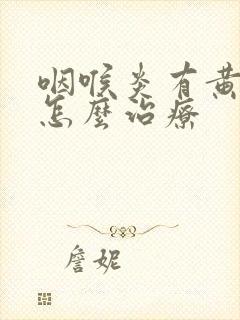 咽喉炎有黄
怎麼治療
詹妮